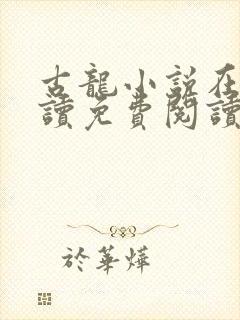 古龍小說在
讀免費閱讀
於華燁